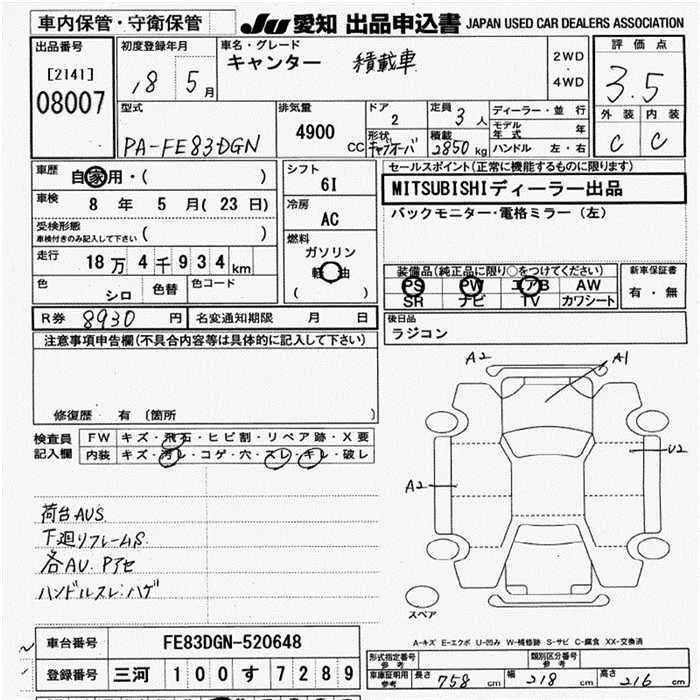 車内保管・守衛保管
JU 愛知 出品申込書 JAPAN USED CAR DEALERS ASSOCIATION
出品番号
[2141]
08007
初度登録年月
18 5月
車名・グレード
キャンター 積載車
2WD
・
4WD
評価点
3.5
外装 内装
C C
型式
PA-FE83DGN
排気量
4900 CC
ドア
2
定員
3人
形状
キャブオーバ
積載
2850kg
ディーラー・並行
モデル年式 年
ハンドル 左・右
車歴
自家用・( )
車検
8年 5月(23日)
受検形態
車検付きのみ記入して下さい ( )
走行
18万4千934km
色
シロ
色替
色コード
シフト
6I
冷房
AC
燃料
ガソリン
軽油
( )
セールスポイント(正常に機能するものに限ります)
MITSUBISHIディーラー出品
バックモニター・電格ミラー(左)
装備品(純正品に限り○をつけてください)
PS PW エアB AW
SR ナビ TV カワシート
新車保証書
有・無
R券 8930円
名変通知期限 月 日
後日品
ラジコン
注意事項申告欄(不具合内容等は具体的に記入して下さい)
修復歴 有 〔箇所 〕
検査員記入欄
FW キズ・飛石・ヒビ割・リペア跡・X要
内装 キズ・汚レ・コゲ・穴・スレ・キレ・破レ
荷台AUS
下廻りフレームS
各AU.Pアセ
ハンドルスレ・ハゲ
A2 A1
A2 U2
スペア
A-キズ E-エクボ U-凹み W-補修跡 S-サビ C-腐食 XX-交換済
車台番号 FE83DGN-520648
登録番号 三河 100 す 7289
形式指定番号
参考
類別区分番号
参考
車庫証明用
参考
長さ 758cm
幅 218cm
高さ 216cm